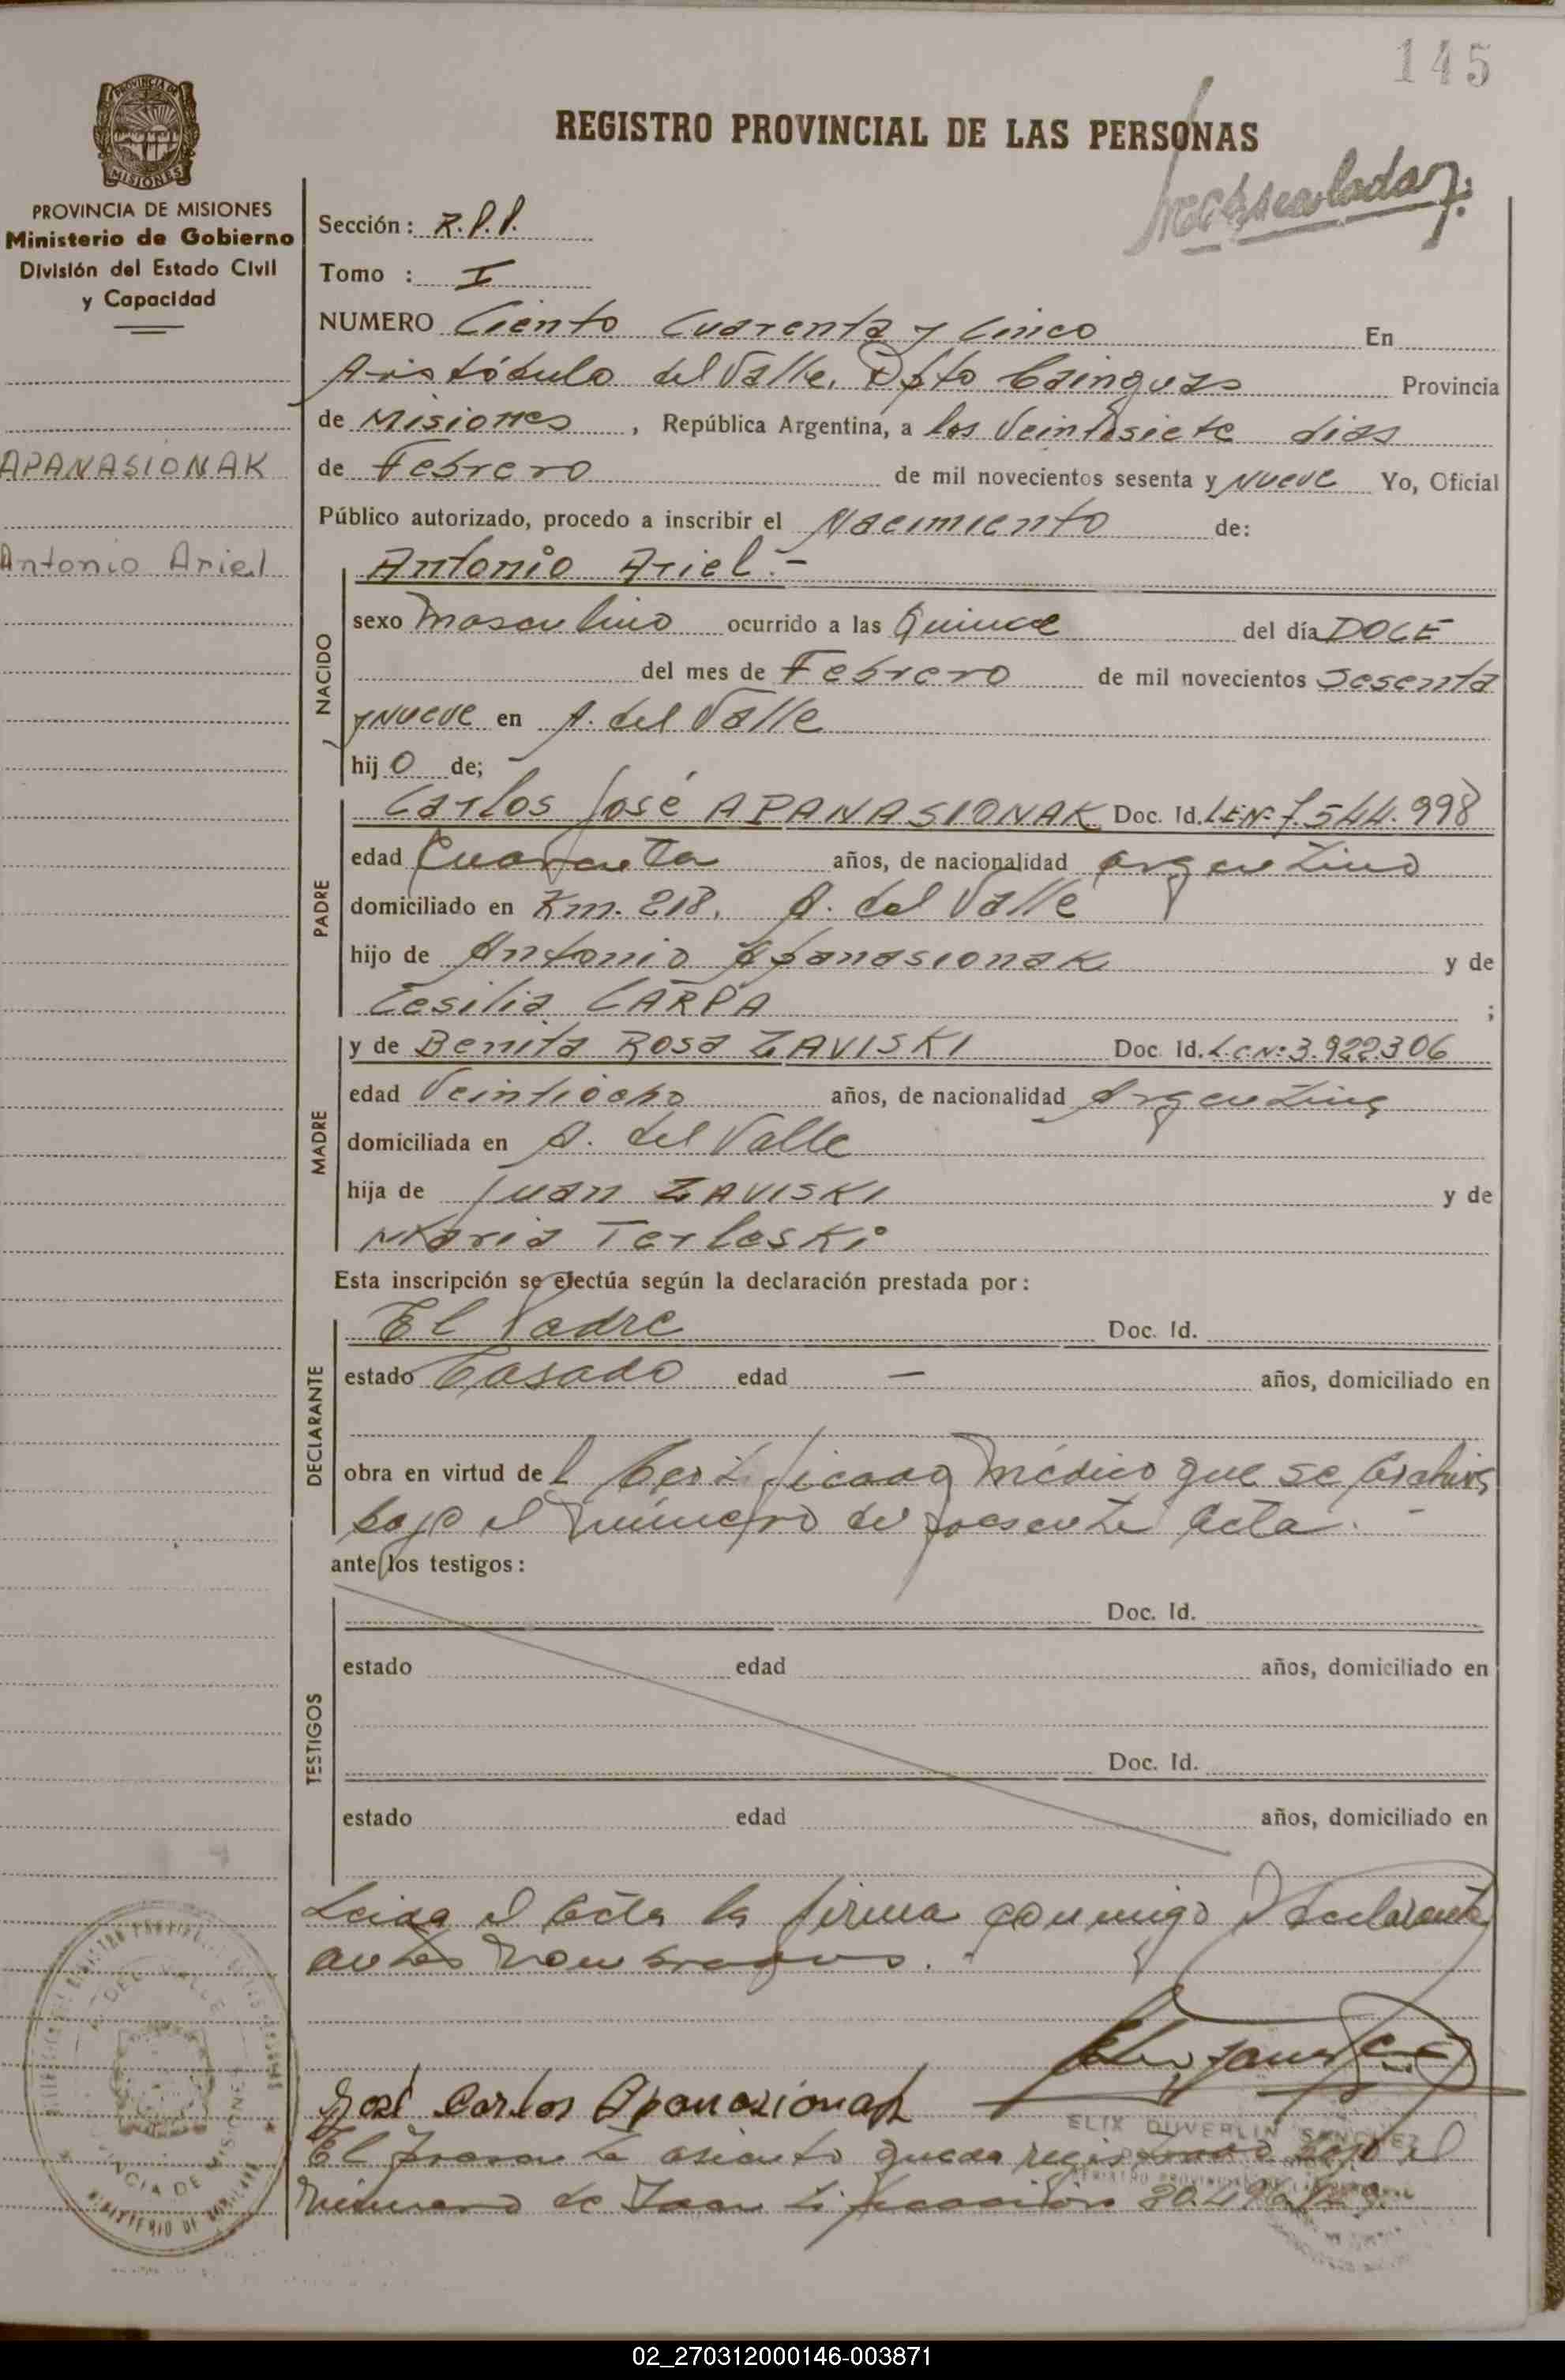 145
REGISTRO PROVINCIAL DE LAS PERSONAS
PROVINCIA DE
MISIONES
PROVINCIA DE MISIONES
Ministerio de Gobierno
División del Estado Civil
y Capacidad
Sección: R.P.P.
Tomo : I
NUMERO Ciento Cuarenta y Cinco En
Aristóbulo del Valle. Dpto Cainguas Provincia
de Misiones, República Argentina, a los Veintisiete dias
APANASIONAK
de Febrero de mil novecientos sesenta y Nueve Yo, Oficial
Público autorizado, procedo a inscribir el Nacimiento de:
Antonio Ariel
Antonio Ariel.-
NACIDO
sexo Masculino ocurrido a las Quince del día DOCE
del mes de Febrero de mil novecientos Sesenta
y Nueve en A. del Valle
hijo de;
PADRE
Carlos José APANASIONAK Doc. Id. L.E.Nº 7.544.998
edad Cuarenta años, de nacionalidad Argentino
domiciliado en Km. 218. A. del Valle
hijo de Antonio Apanasionak y de
Cesilia CARPA ;
MADRE
y de Benita Rosa ZAVISKI Doc. Id. L.C.Nº 3.922306
edad Veintiocho años, de nacionalidad Argentina
domiciliada en A. del Valle
hija de Juan ZAVISKI y de
Maria Terleski
Esta inscripción se efectúa según la declaración prestada por:
DECLARANTE
El Padre Doc. Id.
estado Casado edad - años, domiciliado en
obra en virtud del Certificado Médico que se Archiva
bajo el Número del presente Acta.-
ante los testigos:
TESTIGOS
Doc. Id.
estado edad años, domiciliado en
Doc. Id.
estado edad años, domiciliado en
Leida el Acta la firma conmigo declarante
antes nombrados.
José Carlos Apanasionak
ELIX DUVERLIN SANCHEZ
El presente asiento queda registrado bajo el
Número de
02_270312000146-003871